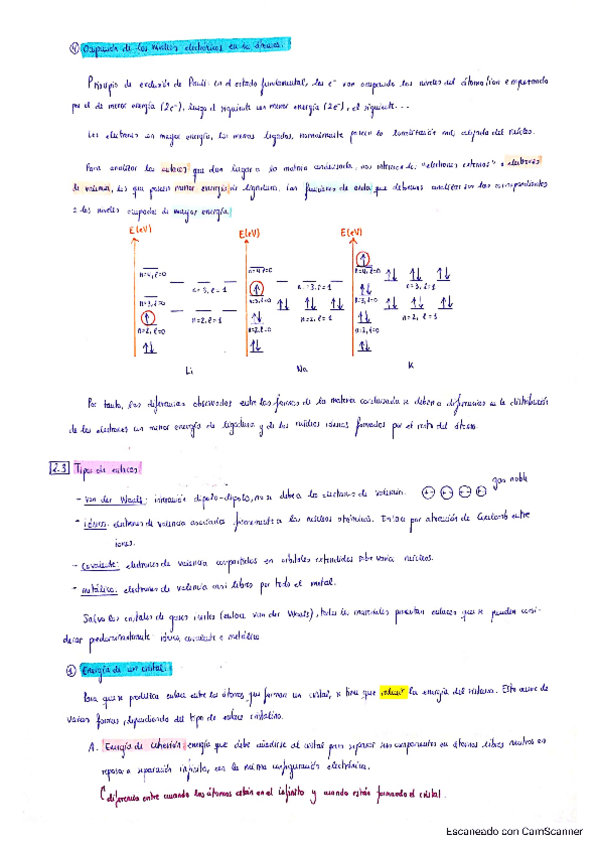 ④ Ocupación de los niveles electrónicos en los átomos.
Principio de exclusión de Pauli: en el estado fundamental, los e⁻ van ocupando los niveles del átomo/ion empezando
por el de menor energía (2e⁻), luego el siguiente con menor energía (2e⁻), el siguiente...
Los electrones con mayor energía, los menos ligados, normalmente poseen la localización más alejada del núcleo.
Para analizar los enlaces que dan lugar a la materia condensada, nos interesan los "electrones externos" o electrones
de valencia, los que poseen menor energía de ligadura. Las funciones de onda que debemos analizar son las correspondientes
a los niveles ocupados de mayor energía.
E(eV) E(eV) E(eV)
n=4, l=0 n=4, l=0 n=4, l=0
n=3, l=1 n=3, l=1 n=3, l=1
n=3, l=0 n=3, l=0 n=3, l=0
n=2, l=1 n=2, l=1
n=2, l=0 n=2, l=0 n=2, l=0
Li Na K
Por tanto, las diferencias observadas entre las formas de la materia condensada se deben a diferencias en la distribución
de los electrones con menor energía de ligadura y de los núcleos iónicos formados por el resto del átomo.
2.3 Tipos de enlaces
gas noble
- van der Waals: interacción dipolo-dipolo, no se debe a los electrones de valencia.
- iónico: electrones de valencia asociados fuertemente a los núcleos atómicos. Enlace por atracción de Coulomb entre
iones.
- covalente: electrones de valencia compartidos en orbitales extendidos sobre varios núcleos.
- metálico: electrones de valencia casi libres por todo el metal.
Salvo los cristales de gases inertes (enlace van der Waals), todos los materiales presentan enlaces que se pueden consi-
derar predominantemente iónico, covalente o metálico
① Energía de un cristal.
Para que se produzca enlace entre los átomos que forman un cristal, se tiene que reducir la energía del sistema. Esto ocurre de
varias formas, dependiendo del tipo de enlace cristalino.
A. Energía de cohesión: energía que debe añadirse al cristal para separar sus componentes en átomos libres neutros en
reposo a separación infinita, con la misma configuración electrónica.
diferencia entre cuando los átomos están en el infinito y cuando están formando el cristal.
Escaneado con CamScanner